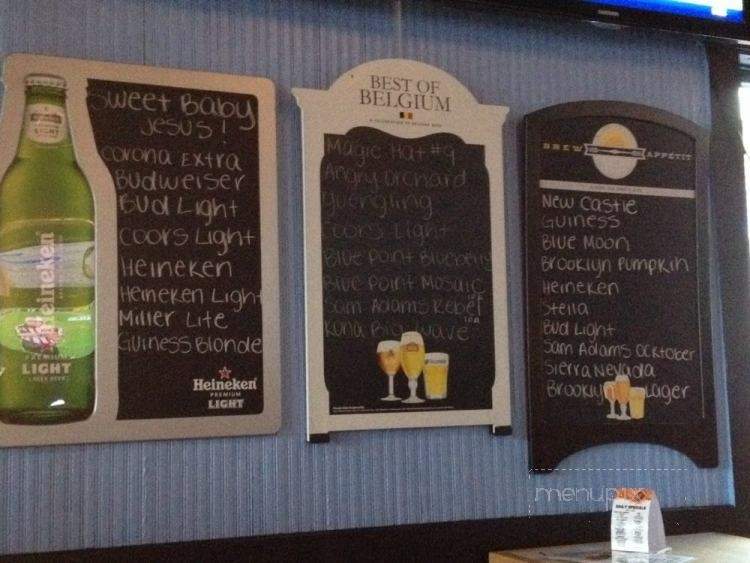 Sweet Baby
Jesus!
Corona Extra
Budweiser
Bud Light
Coors Light
Heineken
Heineken Light
Miller Lite
Guiness Blonde
Heineken
PREMIUM
LIGHT
LIGHT
Heineken
PREMIUM
LIGHT
LAGER BEER
BEST OF
BELGIUM
Magic Hat #9
Angry Orchard
Yuengling
Coors Light
Blue Point Blueberry
Blue Point Mosaic
Sam Adams Rebel
IPA
Kona Big Wave
BREW APPÉTIT
New Castle
Guiness
Blue Moon
Brooklyn Pumpkin
Heineken
Stella
Bud Light
Sam Adams Ocktober
Sierra Nevada
Brooklyn Lager
menupix
DAILY SPECIALS